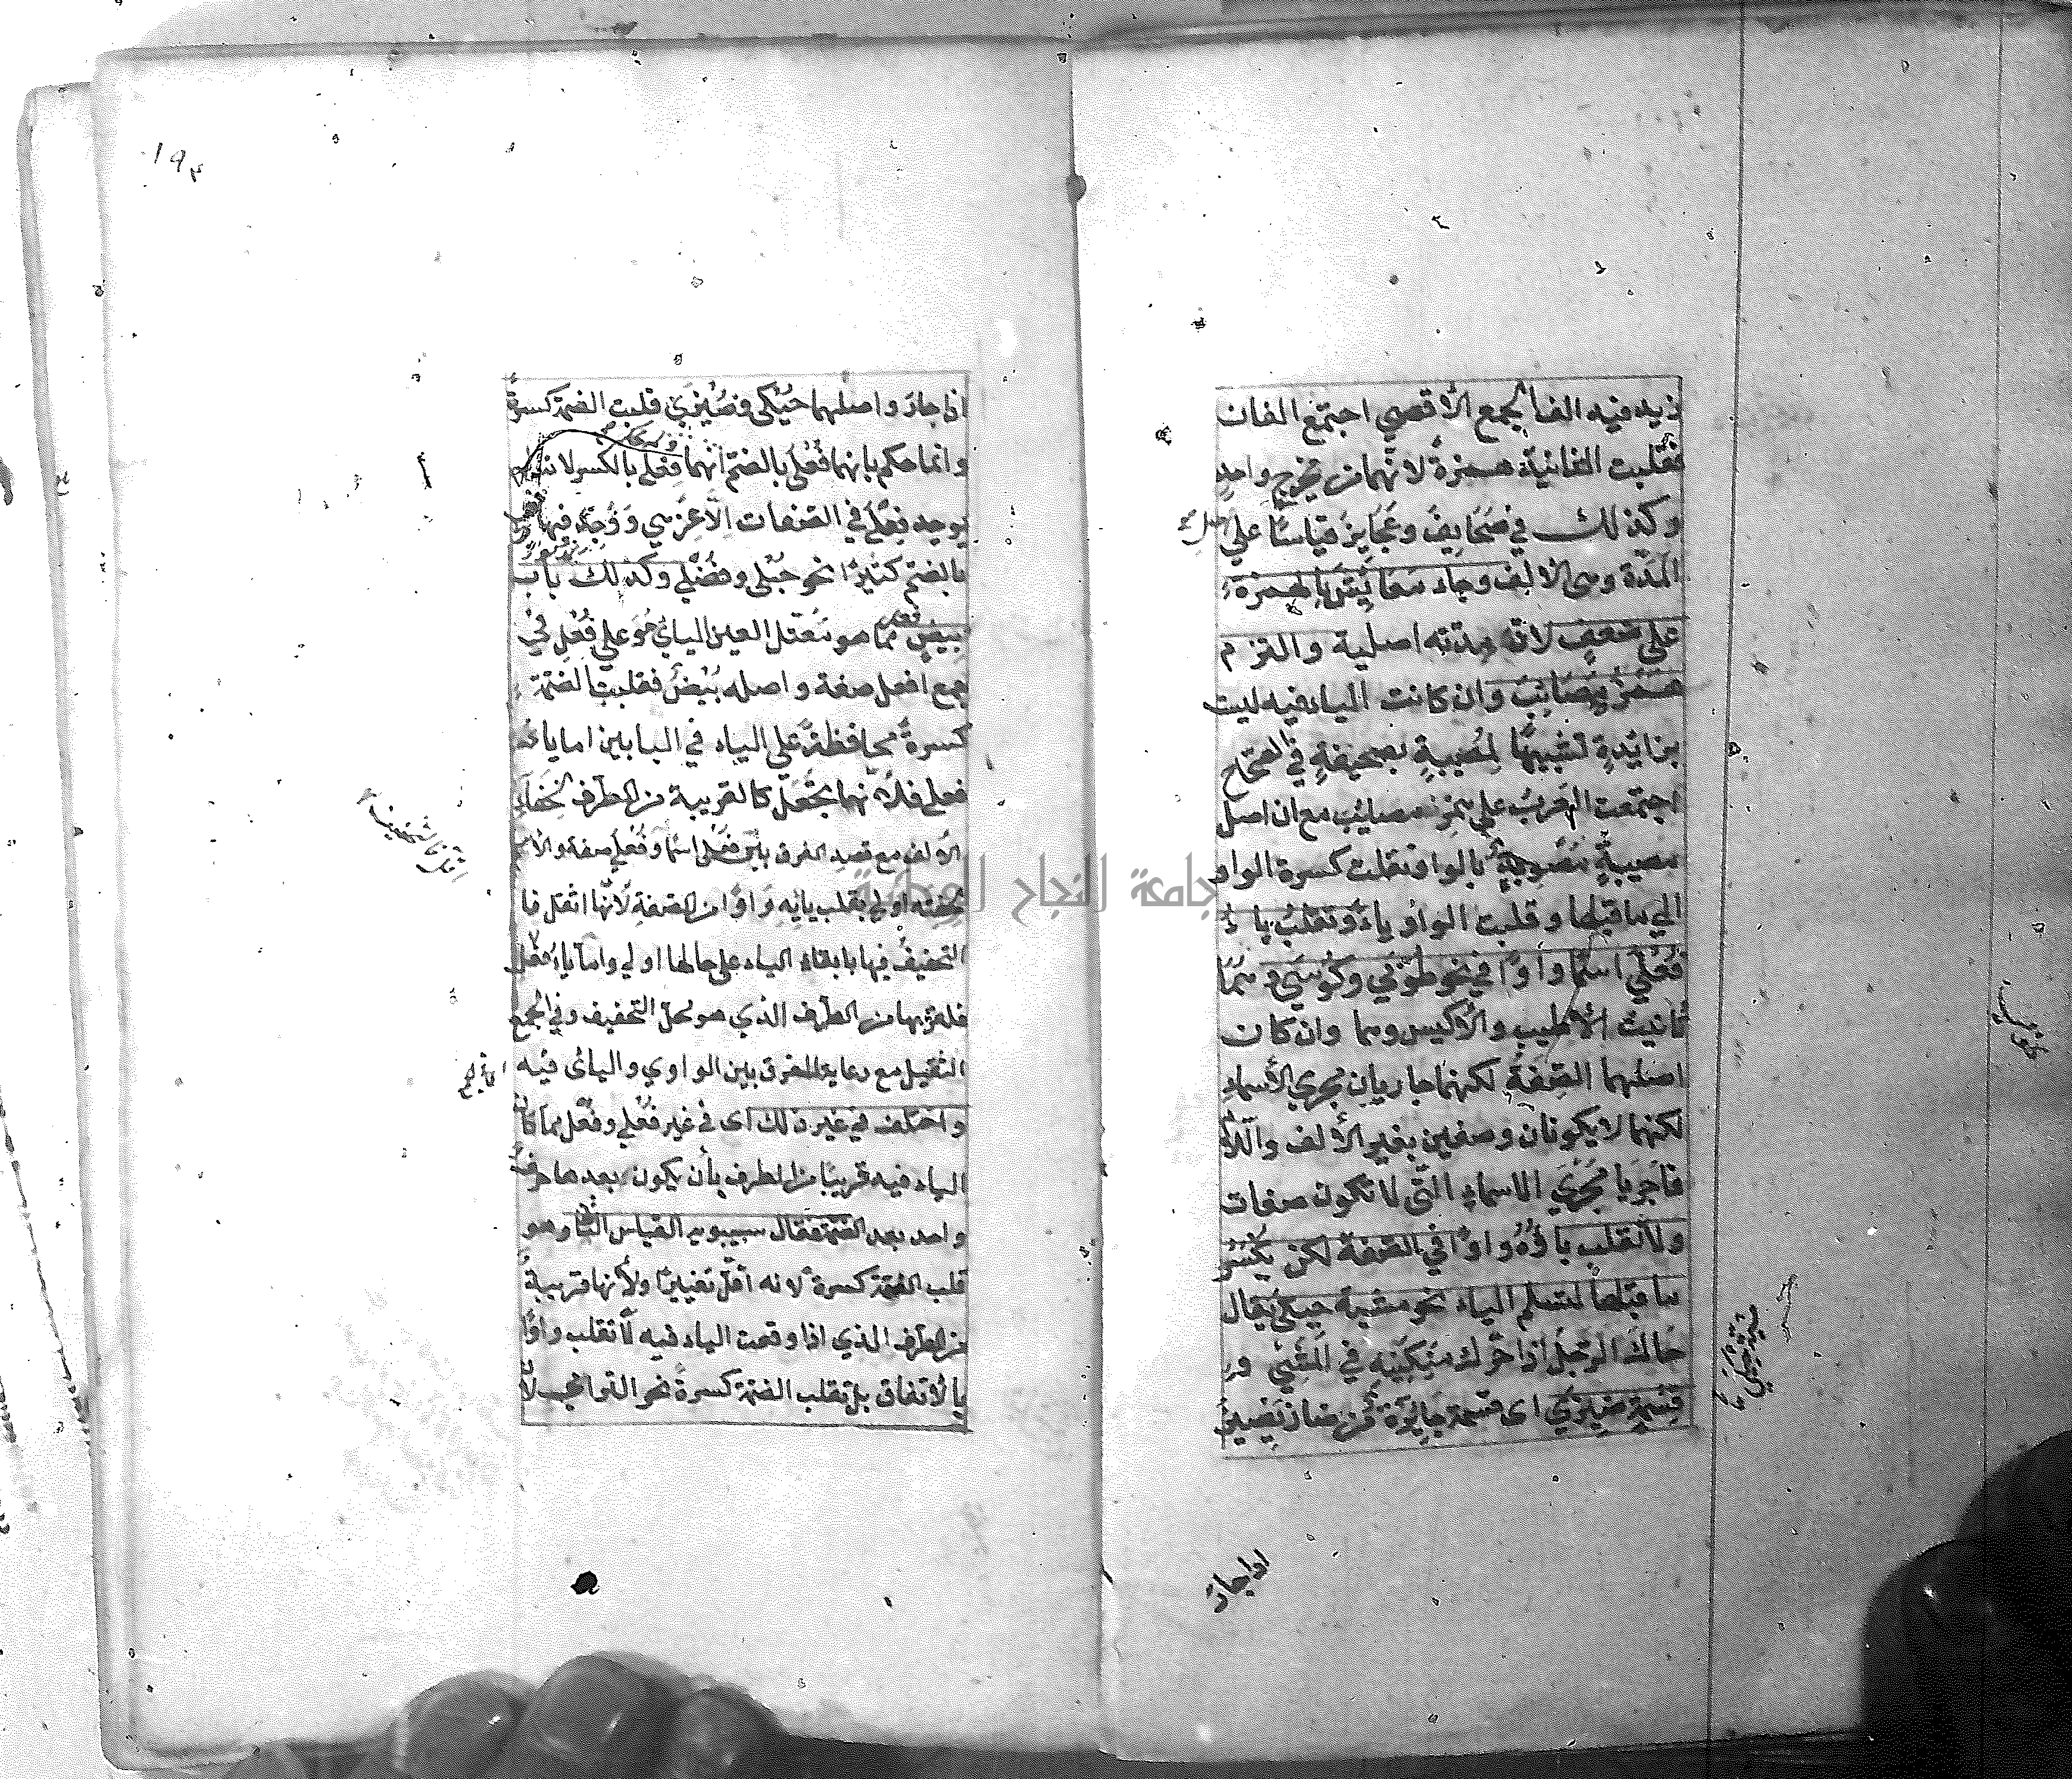 زيد فيه الف الجمع الأقصي اجتمع الفان
فقلبت الثانية همزةً لانهما من مخرج واحدٍ
وكذلك في صَحَايِفَ وعَجَايِزَ قياسًا علي
المَدّة وهي الالف وجاء مَعَائِشَ بالهمزة
علي ضعفٍ لانه مدته اصلية والتزم
همز مصَائِبَ وان كانت الياء فيه ليت
بزائدةٍ تشبيهًا لمُصيبةٍ بصحيفةٍ في الصحاح
اجتمعت العَربُ علي همز مصائب مع ان اصل
مصيبةٍ مُصْوِبةٍ بالواو نقلت كسرة الواو
الي ما قبلها وقلبت الواو ياءً وتقلبُ ياءُ
فُعْلَي اسمًا واوًا في نحو طُوْبَي وكُوْسَي وهمَا
تانيث الأطيب والأكيس وهما وان كان
اصلهما الصِفَةُ لكنهما جاريان مجري الأسماءِ
لكنهما لا يكونان وصفين بغير الألف واللام
فاجريا مُجْرَيَ الاسماءِ التي لا تكون صفات
ولا تقلب ياؤهُ واوًا في الصفة لكن يُكْسَرُ
ما قبلها لتسلم الياء نحو مشية حِيكَي يُقال
حَاكَ الرجُلُ اذا حرّك مَنْكِبَيْهِ في المَشْيِ و
قِسْمةٍ ضِيْزَي اى قسمةٍ جائِرَةٍ من ضاز يَضِيزُ
اذا جارَ
اذا جارَ واصلهما حُيْكَي وضُيْزَي قلبت الضمة كسرةً
وانما حكم بانهما فُعْلَي بالضم لا انهما فِعْلَي بالكسر لانه لم
يوجد فِعْلَي في الصفات الّا عِزْهي وَوُجِدَ فيها
بالضم كثيرًا نحو حُبْلَي وفُضْلَي وكذلك باب
بِيْضٍ مما هو مُعتَلّ العين اليائيّ علي فُعْلٍ في
جمع افعل صفة واصله بُيْضٌ فقلبت الضمة
كسرةً محافظةً علي الياء في البابين اما ياءُ
فعلي فلأنّهما يُجْعَلُ كالقريبة من الطرف لخَفَاءِ
الألف مع قصدِ الفرق بين فُعْلَي اسمًا وفُعْلَي صفة والاسم
لخفته اولي بقلب يائِهِ وَاوًا من الصفةِ لأنها اثقل فا
التخفيفُ فيها بابقاء الياء علي حالها اولي وامّا ياءُ فُعْلٍ
فلقربها من الطرف الذي هو محلّ التخفيف وفي الجمع
الثقيل مع رعاية الفرق بين الواوي واليائى فيه
واختلف في غير ذلك اى في غير فُعْلَي وفُعْل مما كان
الياء فيه قريبًا من الطرف بأن يكون بعدها حرفٌ
واحد بعد الضمة فقال سيبويه القياس الثاني وهو
قلب الضمة كسرةً لانه اقلّ تغييرًا ولأنها قريبةٌ
من الطرف الذي اذا وقعت الياء فيه لا تقلب واوًا
بالاتفاق بل تقلب الضمة كسرةً نحو الترامي لا
جامعة النجاح الوطنية